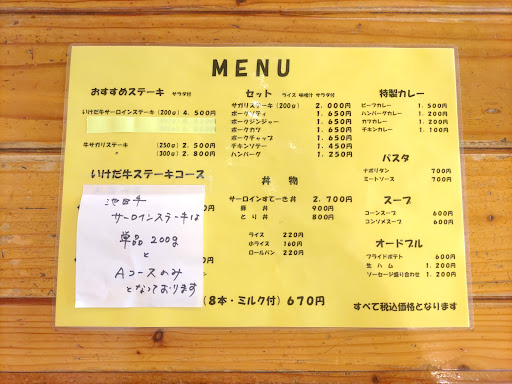 MENU
おすすめステーキ サラダ付
いけだ牛サーロインステーキ (200g) 4.500円
牛サガリステーキ (250g) 2.500円
〃 (300g) 2.800円
いけだ牛ステーキコース
池田牛
サーロインステーキは
単品 200g
と
Aコースのみ
となっております
(8本・ミルク付) 670円
セット ライス 味噌汁 サラダ付
サガリステーキ (200g) 2.000円
ポークソティ 1.650円
ポークジンジャー 1.650円
ポークカツ 1.650円
ポークチャップ 1.650円
チキンソテー 1.450円
ハンバーグ 1.250円
丼物
サーロインすてーき丼 2.700円
豚丼 900円
とり丼 800円
ライス 220円
小ライス 160円
ロールパン 220円
特製カレー
ビーフカレー 1.500円
ハンバーグカレー 1.200円
カツカレー 1.200円
チキンカレー 1.100円
パスタ
ナポリタン 700円
ミートソース 700円
スープ
コーンスープ 600円
コンソメスープ 600円
オードブル
フライドポテト 600円
生ハム 1.200円
ソーセージ盛り合わせ 1.200円
すべて税込価格となります